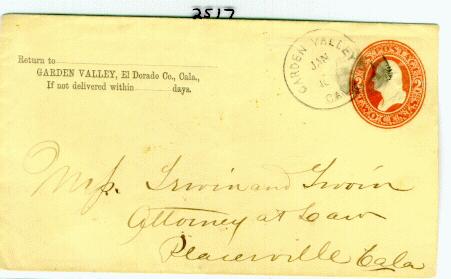 2517
Return to
GARDEN VALLEY, El Dorado Co., Cala.,
If not delivered within days.
GARDEN VALLEY
JAN
CA
Mess. Irwin and Irwin
Attorney at Law
Placerville Cala